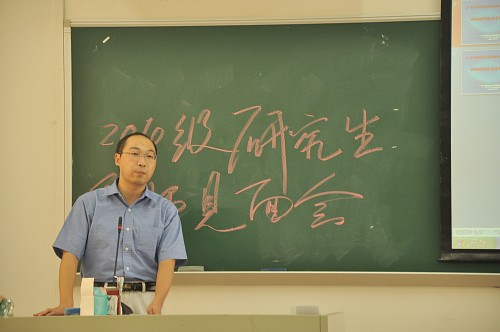 2010级研究生
见面会